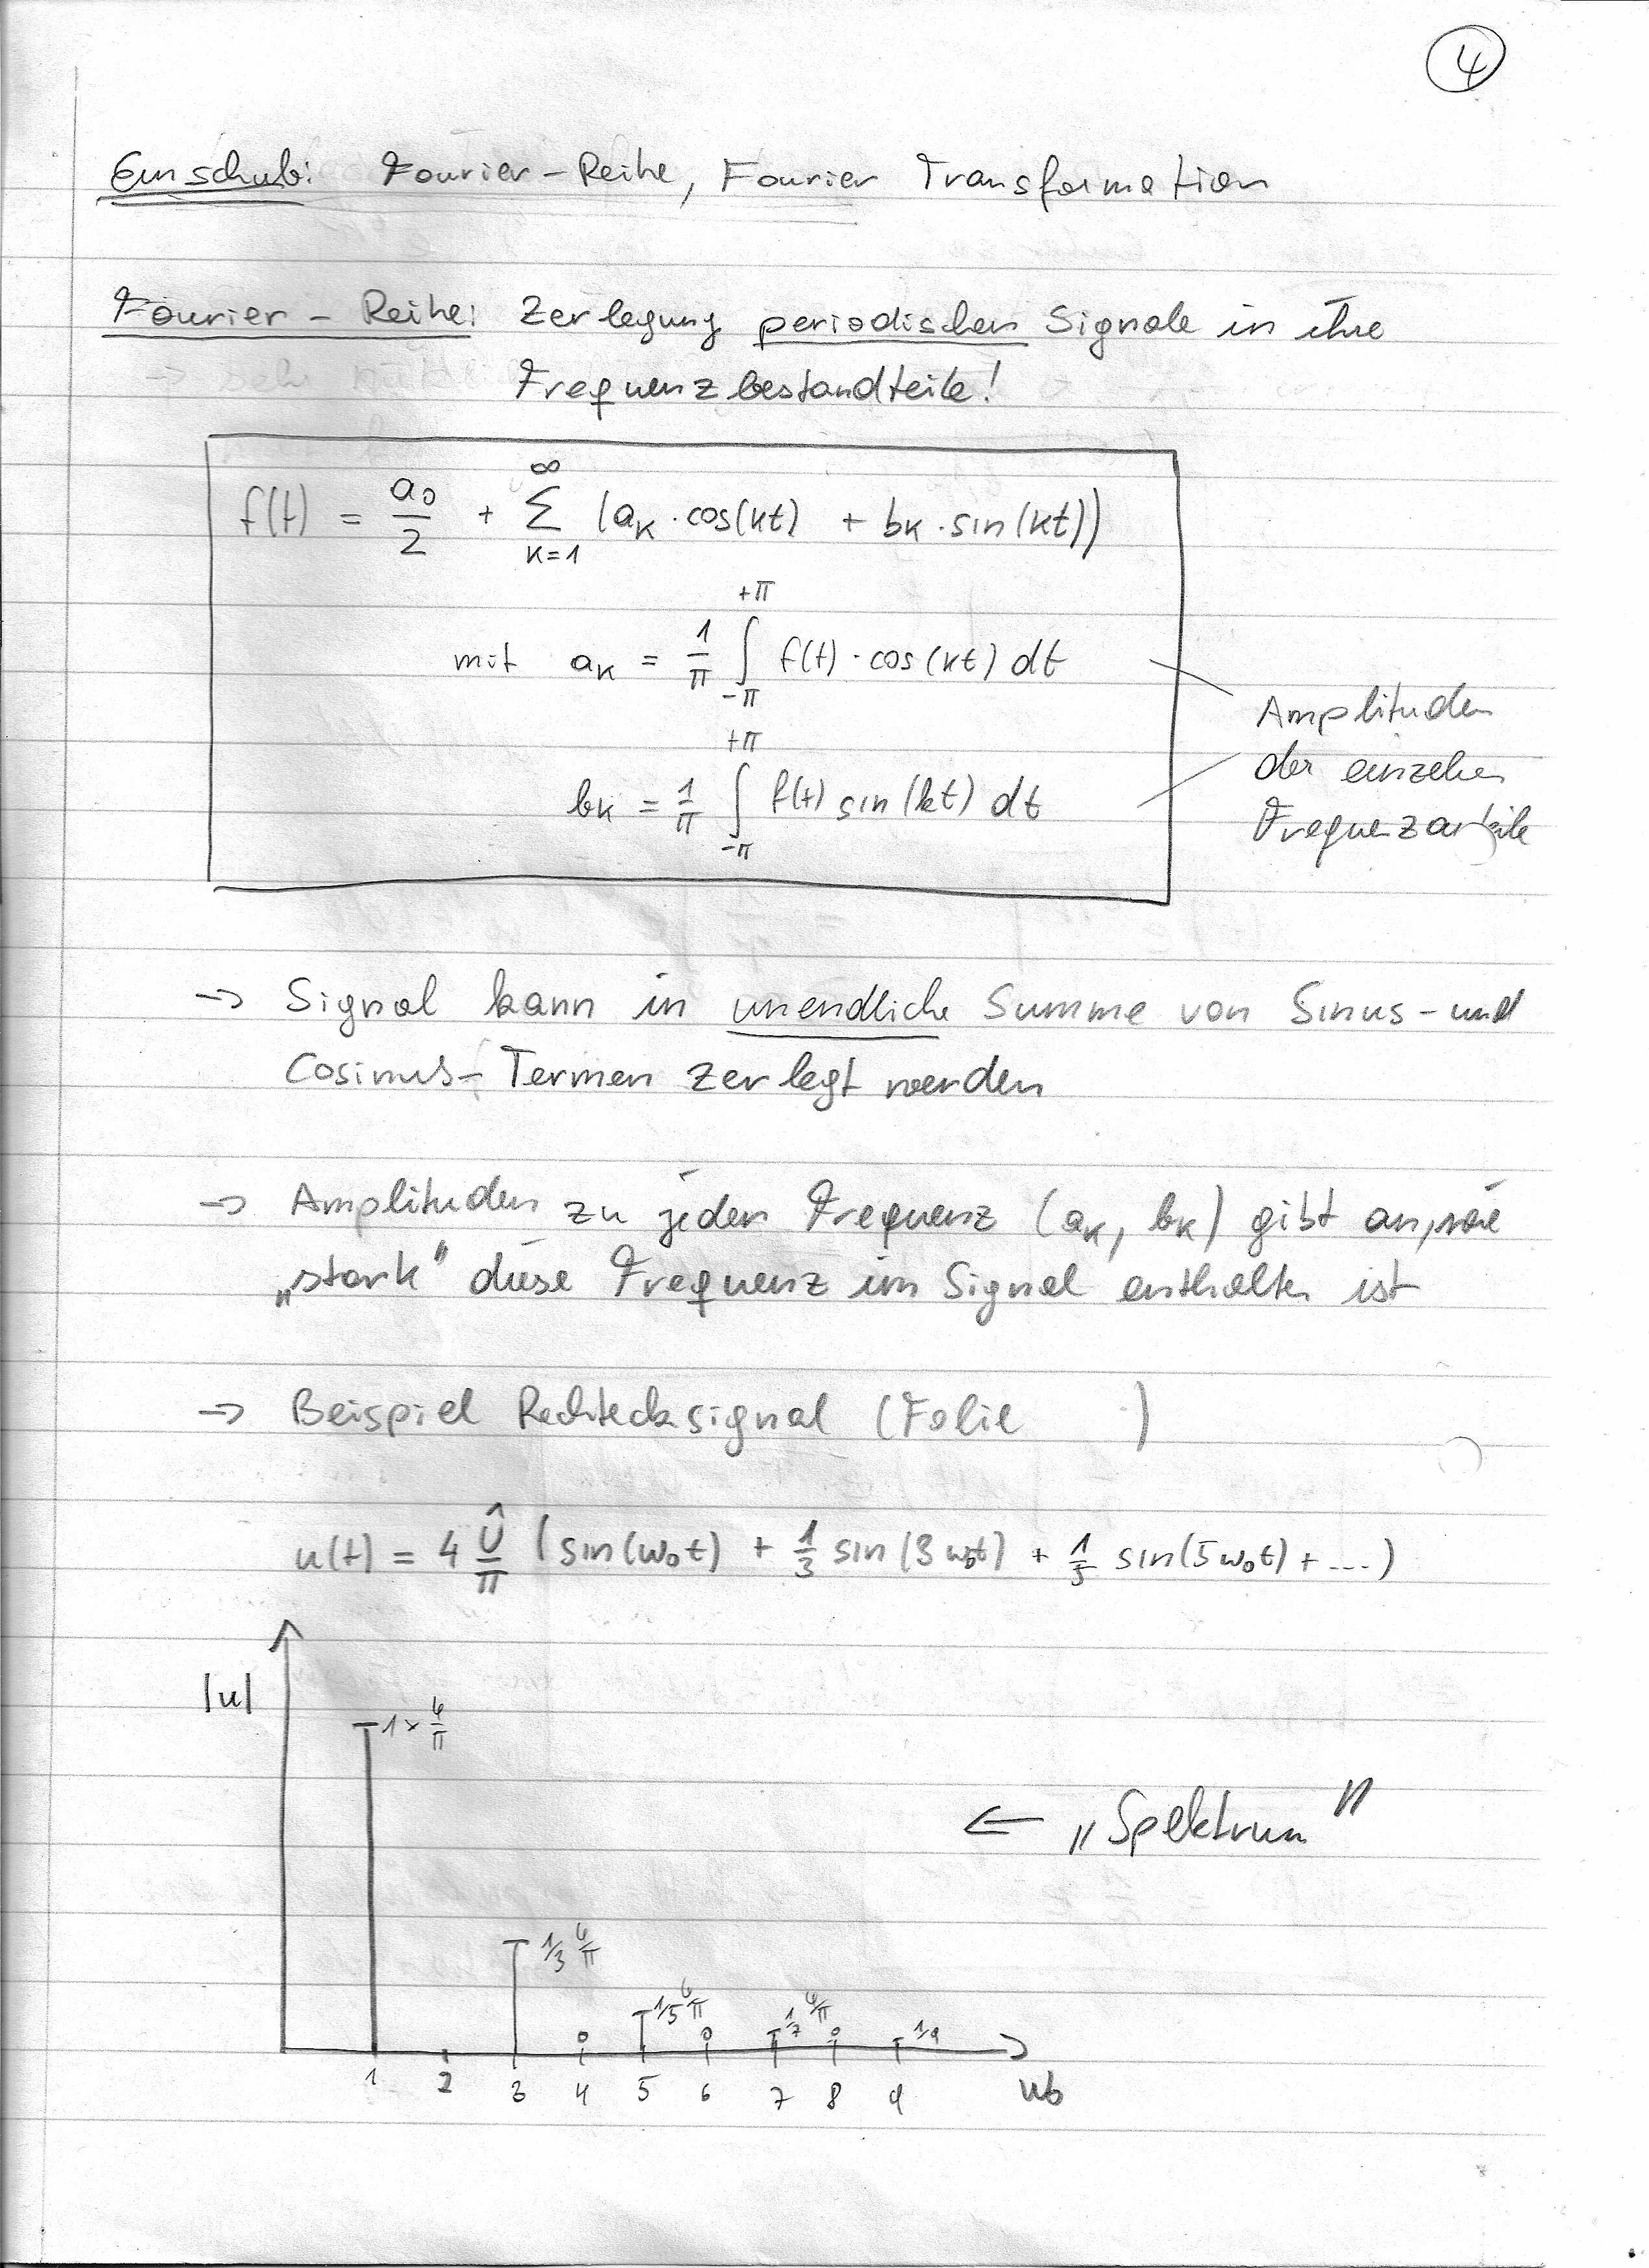 4
Einschub: Fourier-Reihe, Fourier Transformation
Fourier-Reihe: Zerlegung periodischer Signale in ihre
Frequenzbestandteile!
f(t) = a₀/2 + ∑ k=1 ∞ (aₖ · cos(kt) + bₖ · sin(kt))
mit aₖ = 1/π ∫ -π +π f(t) · cos(kt) dt
bₖ = 1/π ∫ -π +π f(t) sin(kt) dt
Amplituden
der einzelnen
Frequenzanteile
→ Signal kann in unendliche Summe von Sinus- und
Cosinus-Termen zerlegt werden
→ Amplituden zu jeder Frequenz (aₖ, bₖ) gibt an, wie
„stark" diese Frequenz im Signal enthalten ist
→ Beispiel Rechtecksignal (Folie )
u(t) = 4 Û/π (sin(ω₀t) + 1/3 sin(3ω₀t) + 1/5 sin(5ω₀t) + ....)
|u|
1 × 4/π
← „Spektrum"
1/3 4/π
1/5 4/π
1/7 4/π
1/9
0 0 0
1 2 3 4 5 6 7 8 9 ω₀